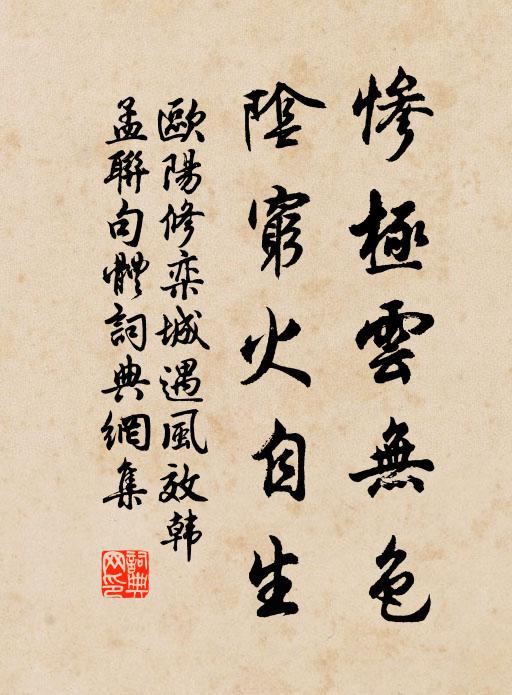 慘極雲無色
陰窮火自生
歐陽修栾城遇風效韩
孟聯句體詞典網集
詞典網印